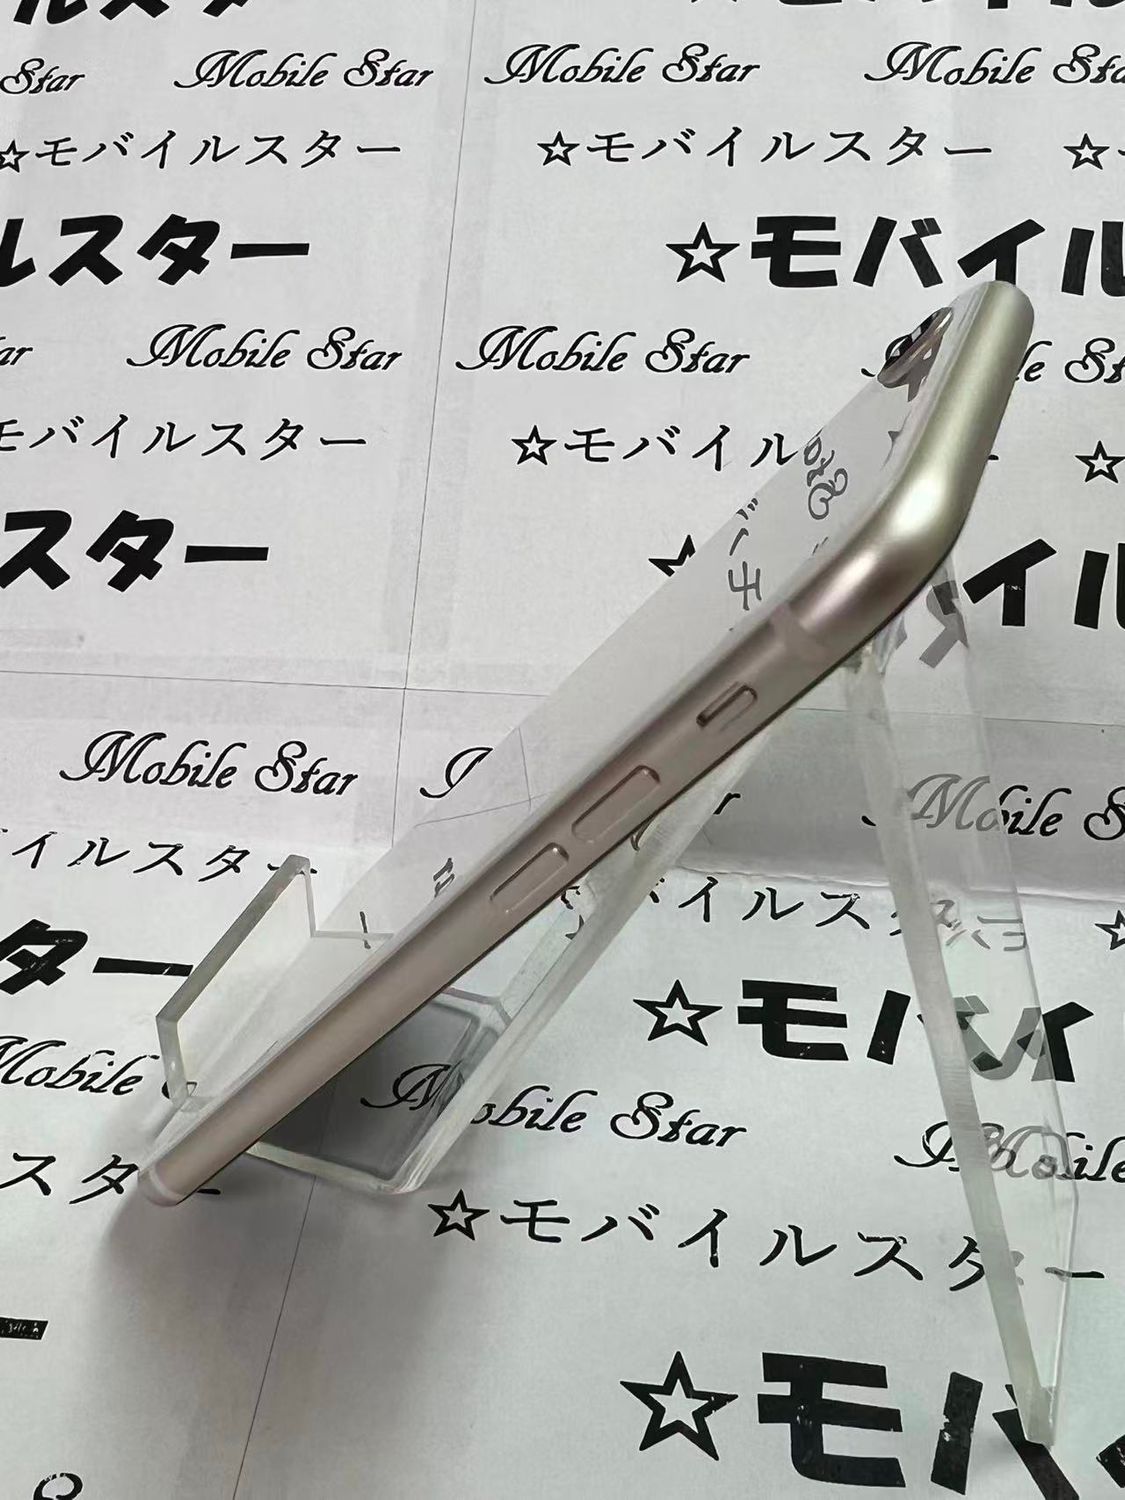 ルスター
Star Mobile Star Mobile Star Mobile
☆モバイルスター ☆モバイルスター ☆
ルスター ☆モバイル
Mobile Star Mobile Star
モバイルスター ☆モバイル ☆
スター イル
Mobile Star Mobile
イルスター バイルス ☆
ター ☆モバイ
Mobile Mobile Star Mobile
スター ☆モバイルスター
☆モバ